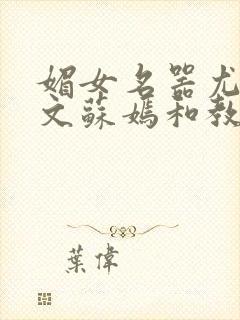 媚女名器尤
文蘇媽和教
葉偉